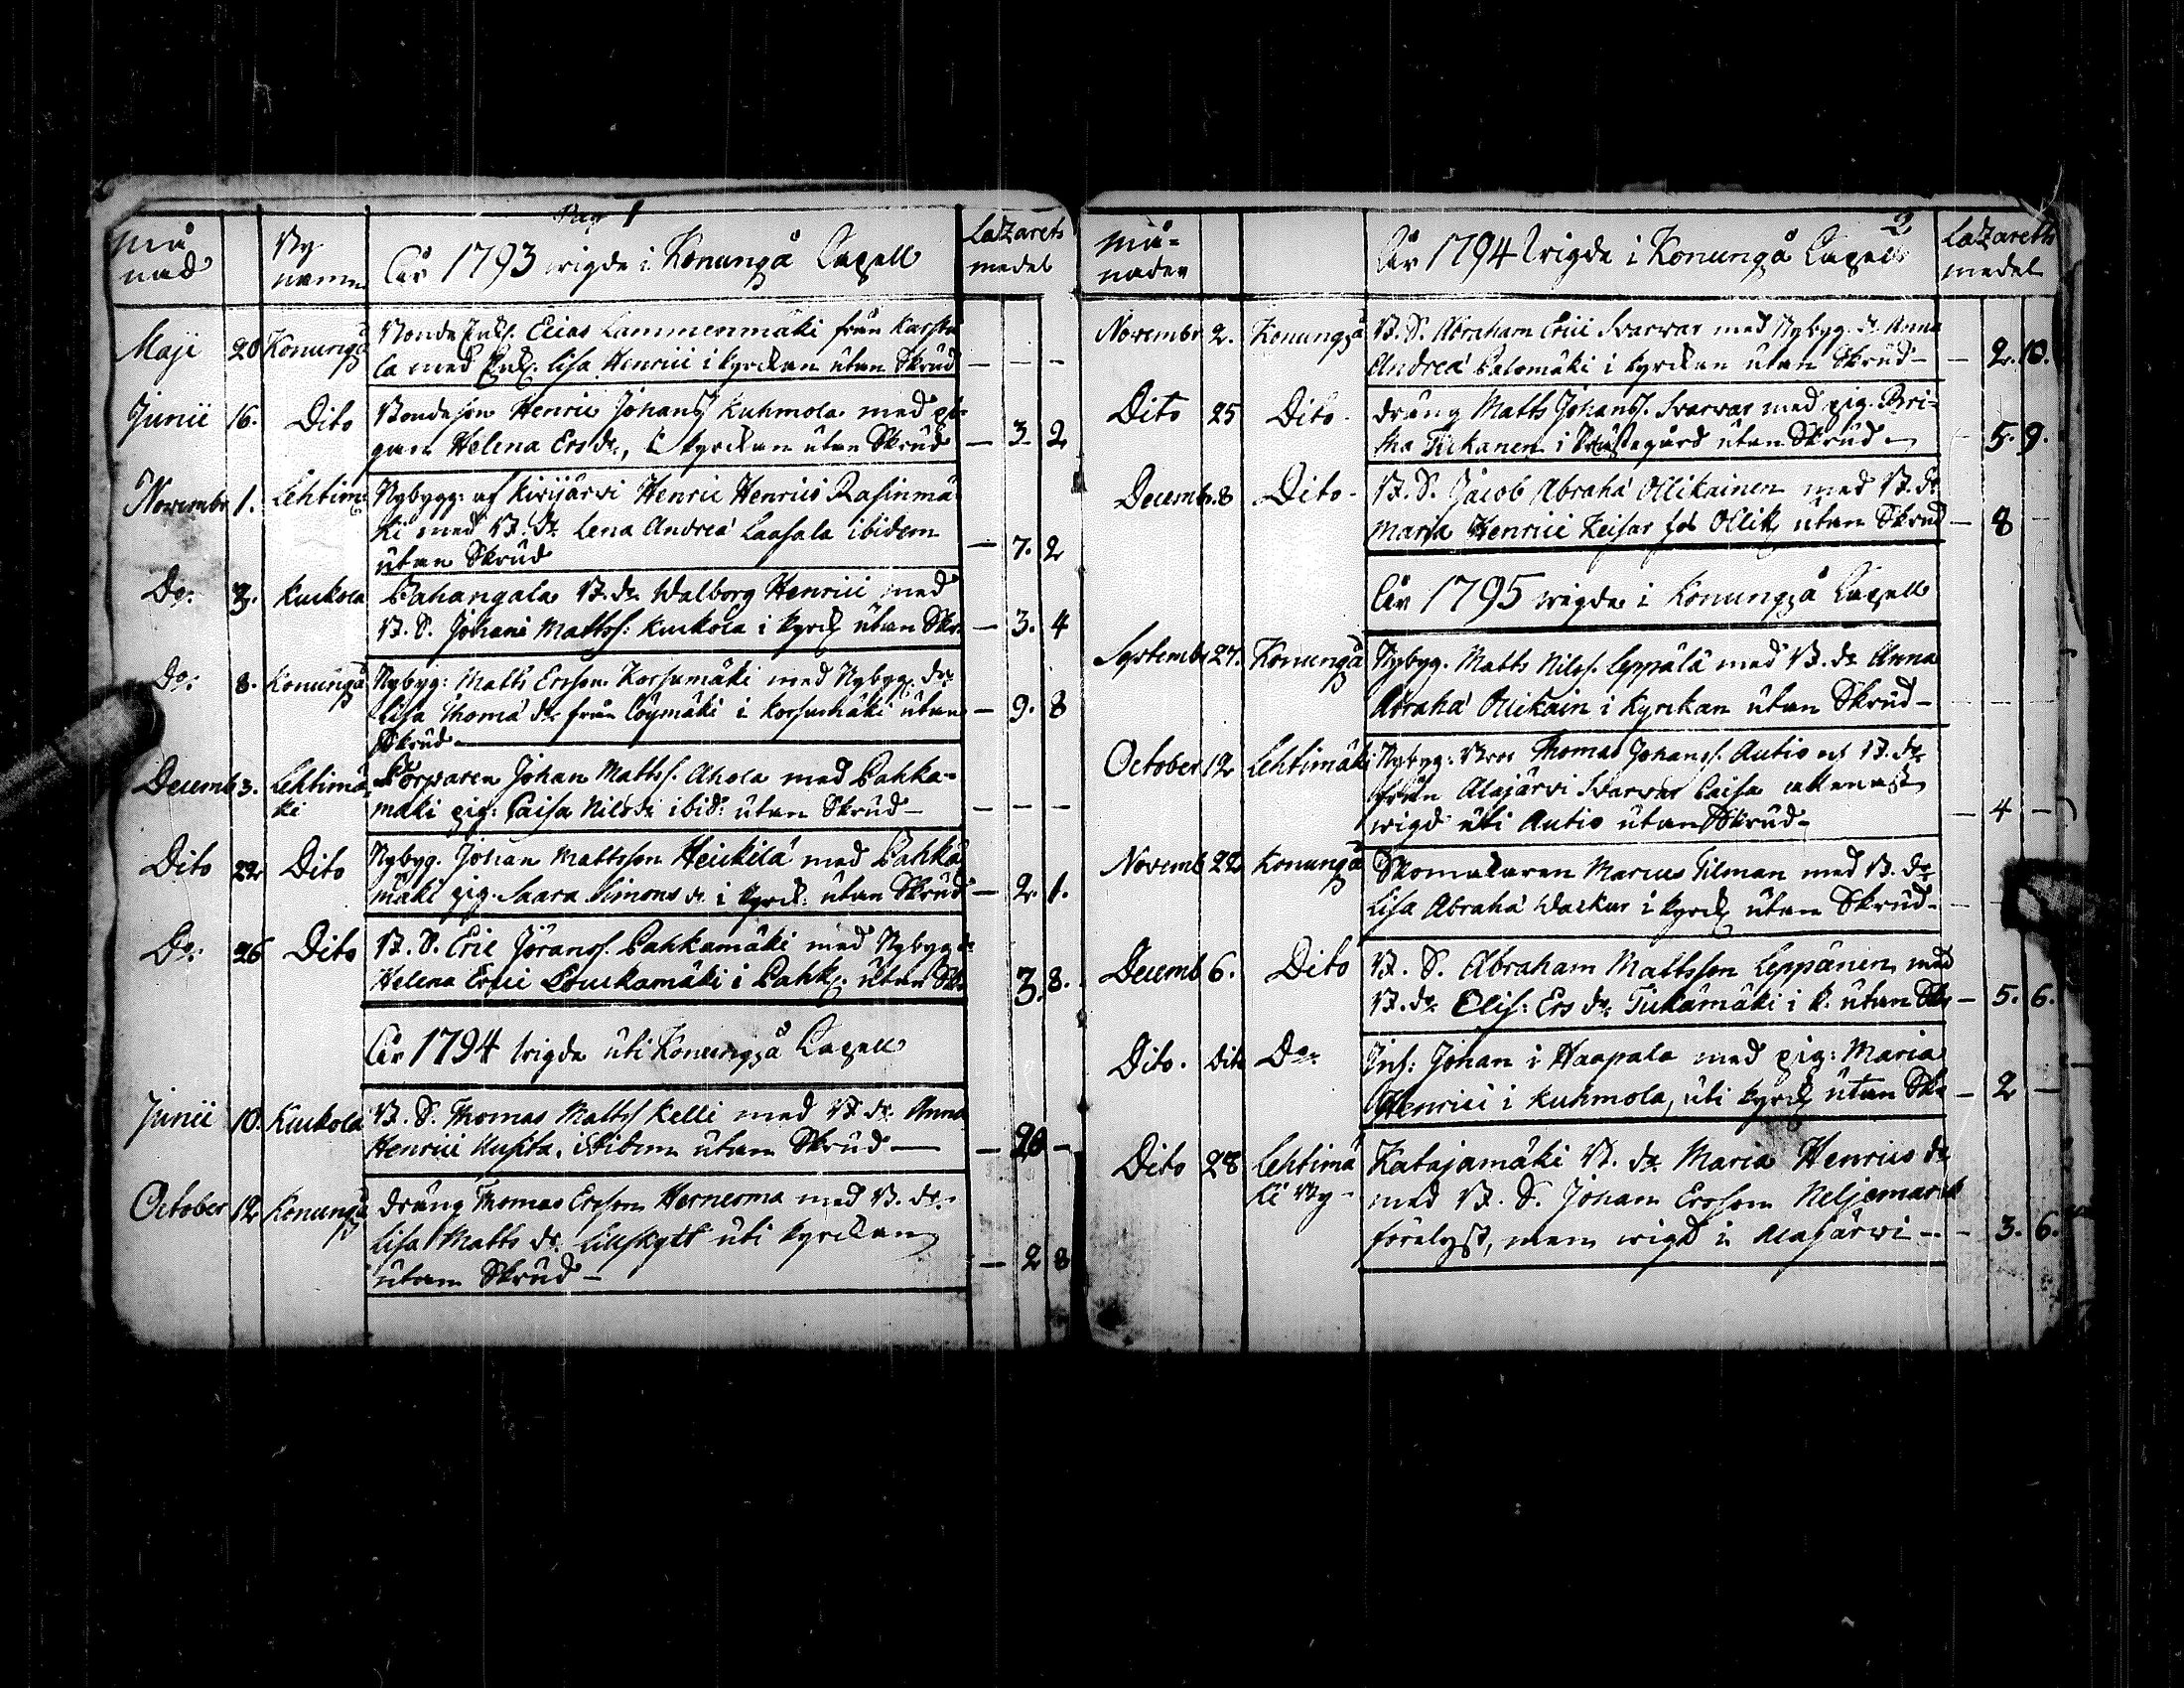 Pag 1
Må
nad
By
namn
År 1793 wigde i Konungå Capell
Lazarets
medel
Maji 20 Konungå Bonde Enkl. Elias Lammenmäki från Karstu
la med Enk. Lisa Henrici i kyrckan utan Skrud — — —
Junii 16. Dito Bondeson Henric Johanss Kuhmola med pi-
gan Helena Ersdr, i kyrckan utan Skrud — 3 2
Novembr 1. Lehtimä Nybygg: af Kivijärvi Henric Henrics Rasinmä
ki med B. dr Lena Andreæ Laasala ibidem — 7. 2
utan Skrud
Do: 3. Kuckola Pahangala B. dr Walborg Henrici med
B. S. Johan Mattss: Kuckola i kyrck utan Skr. — 3. 4
Do: 8. Konungå Nybyg: Matts Ersson Korsumäki med Nybyg. dr
Lisa Thomæ dr från Löymäki i Korsumäki utan — 9. 8
Skrud
Decemb 3. Lehtimä Torparen Johan Mattss. Ahola med Pahka-
ki mäki pig: Caisa Nilsdr ibid: utan Skrud — — — —
Dito 22 Dito Nybyg. Johan Mattsson Heickilä med Pahka
mäki pig. Saara Simons dr i kyrck. utan Skrud — 2. 1.
Do: 26 Dito B. S. Eric Jöranss. Pahkamäki med Nybyg dr
Helena Erici Louckamäki i Pahk. utan Sk. 3. 8.
År 1794 wigde uti Konungå Capell
Junii 10. Kuckola B. S. Thomas Mattss Kelli med B. dr Anna
Henrici Uusita, ibidem utan Skrud — — 20 —
October 12 Konungå dräng Thomas Ersson Hernesma med B. dr
Lisa Matts dr Lillskytt uti kyrckan
utan Skrud — — 2 8
2
Må-
nader
År 1794 wigde i Konungå Capell
Lazarets
medel
Novembr 2. Konungå B. S. Abraham Erici Svarvar med Nybyg. dr Anna
Andreæ Palomäki i kyrckan utan Skrud — — 2. 10.
Dito 25 Dito - dräng Matts Johanss. Svarvar med pig. Bri-
ta Tukanen i Prästegård utan Skrud — 5. 9.
Decemb. 8 Dito - B. S. Jacob Abrahæ Ollikainen med B. dr
Maria Henrici Keisar hos Ollik utan Skrud — 8 —
År 1795 wigde i Konungå Capell
Septemb 27. Konungå Nybyg. Matts Nilss. Leppälä med B. dr Anna
Abrahæ Ollikain i kyrckan utan Skrud — — —
October 12 Lehtimäki Nybyg: Bror Thomas Johanss. Autio och B. dr
från Alajärvi Svarvar Caisa
wigd uti Autio utan Skrud — — 4 —
Novemb 22 Konungå Skomakaren Marcus Tilman med B. dr
Lisa Abrahæ Wackar i kyrck utan Skrud — —
Decemb 6. Dito B. S. Abraham Mattsson Leppänen med
B. dr Elis: Ers dr Tukamäki i k. utan Skr — 5. 6.
Dito. Dito Do: Inh: Johan i Haapala med pig: Maria
Henrici i Kuhmola, uti kyrck utan Skr — 2 —
Dito 28 Lehtimä Katajamäki B. dr Maria Henrics dr
ki By - med B. S. Johan Ersson Neljemarck
förelyst, men wigd i Alajärvi — — 3. 6.